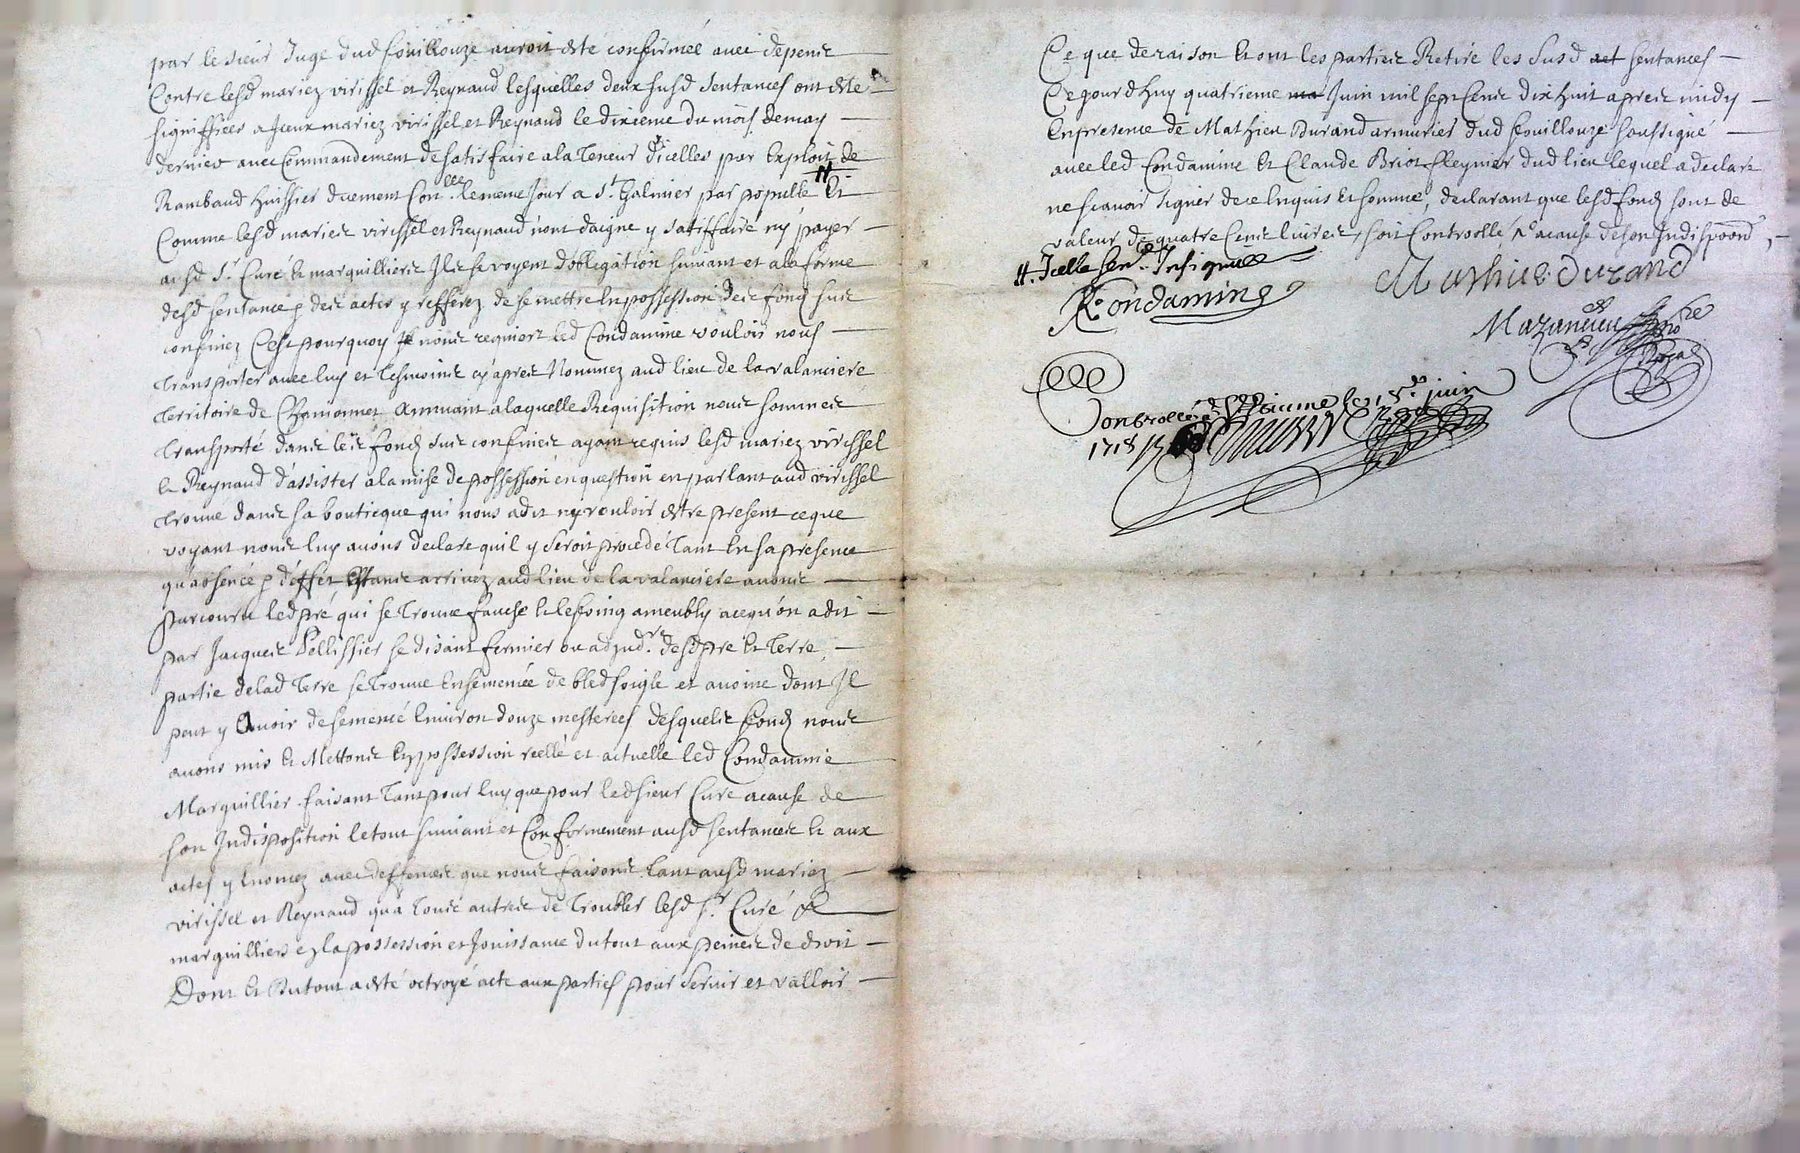 par le sieur Juge dud fouillouze auroit esté confirmée avec depens
Contre lesd mariez virissel et Reynaud lesquelles deux susd sentances ont esté
signiffiées a Jceux mariez virissel et Reynaud le dixieme du mois de may
dernier avec Commandement de satisfaire a la teneur d'icelles par Exploit de
Rambaud huissier duement Con.llé le meme Jour a St. Galmier par populle H Et
Comme lesd mariez virissel et Reynaud n'ont daigné y satisffaire ny payer
ausd Sr. Curé & marguilliers Jls se voyent d'obligation suivant et a la forme
desd sentance p des actes y refferez de se mettre En possession des fond sus
confinez C'est pourquoy nous requiert led Condamine vouloir nous
transporter avec luy et tesmoins cy apres Nommez aud lieu de la valanciere
territoire de Chamonnet Annuant a laquelle Requisition nous sommes
transporté dans les fond sus confinez ayant requis lesd mariez virissel
& Reynaud d'assister a la mise de possession en question en parlant aud virissel
trouvé dans sa bouticque qui nous a dit ny vouloir estre present ce que
voyant nous luy avons declaré quil y seroit procedé tant En sa presence
qu'absence p d'effet Estants arrivez aud lieu de la valanciere avons
parcouru led pré qui se trouve fauché & les foing ameubly a ce qu'on a dit
par Jacques Pellissier se disant fermier ou adjud.r desd pré et terre
partie delad terre se trouve Ensemencée de bled soigle et avoine dont Jl
peut y Avoir de semencé Environ douze mesterees desquels fond nous
avons mis & Mettons En possession reelle et actuelle led Condamine
Marguillier faisant tant pour luy que pour led sieur Curé a cause de
son Jndisposition le tout suivant et Conformement ausd sentances & aux
actes y Enoncez avec deffences que nous faisons tant ausd mariez
virissel et Reynaud qu'a tous autres de troubler lesd Sr. Curé &
marguilliers en la possession et Jouissance du tout aux peines de droit
Dont & Du tout a esté octroyé acte aux parties pour servir et valloir
Ce que de raison Et ont les parties Retiré les susd sentances
Ce jourd'huy quatrieme Juin mil sept Cents dix huit apres midy
En presence de Mathieu Durand armurier dud fouillouze soussigné
avec led Condamine Et Claude Briot Pleynier dud lieu lequel a declaré
ne scavoir signer de ce Enquis Et sommé, declarant que lesd fond sont de
valeur de quatre Cents livres, soit Controollé, a cause de son Jndispoon.
H. Jcelle sen.ce Jnsinuée
Mathieu Durand
R. Condamine
Mazancieu
Royal
Controollé a St Etienne le 15e juin
1718